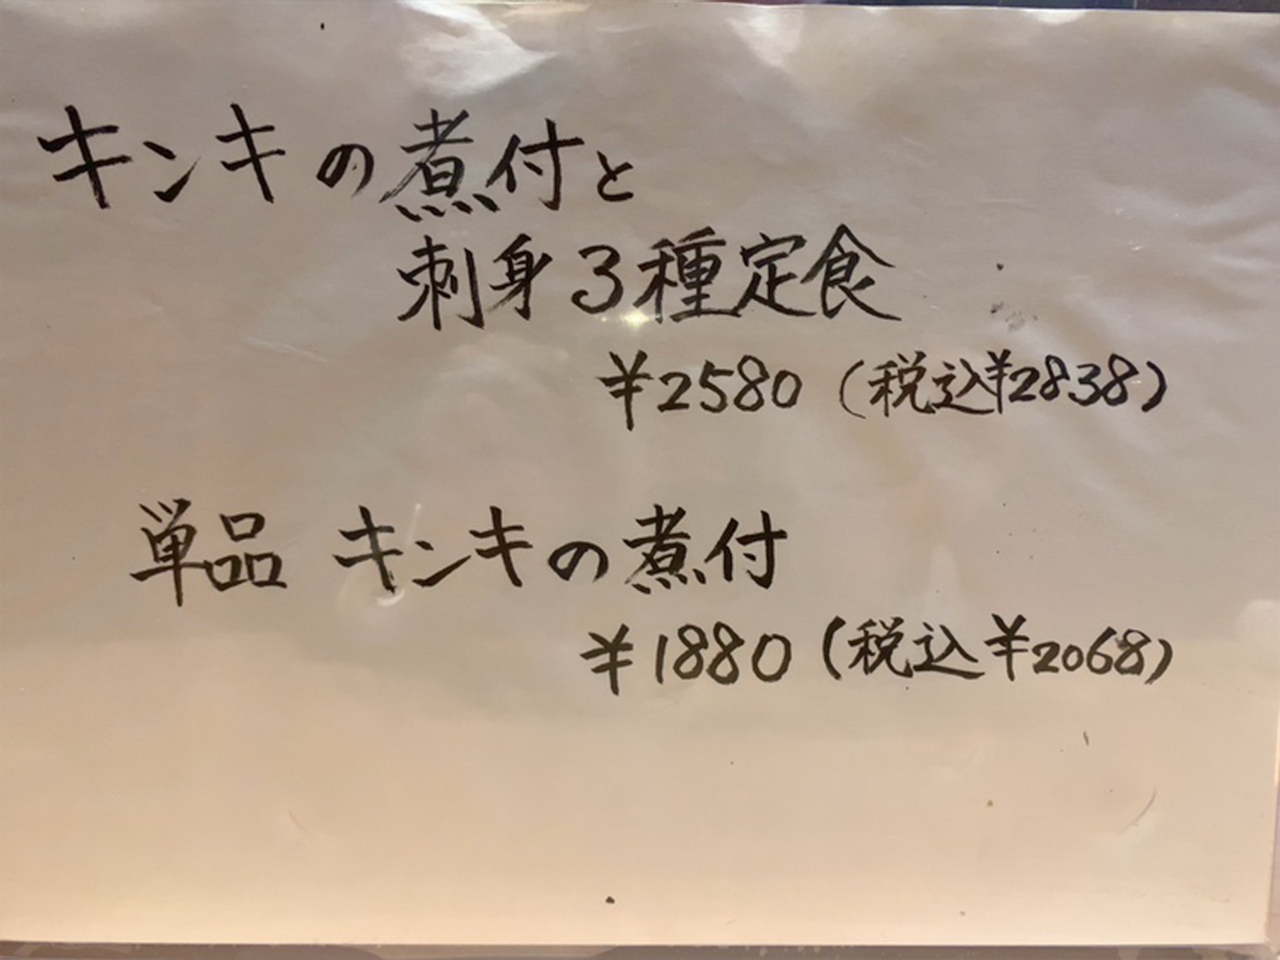 キンキの煮付と
刺身3種定食
¥2580（税込¥2838）
単品 キンキの煮付
¥1880（税込¥2068）